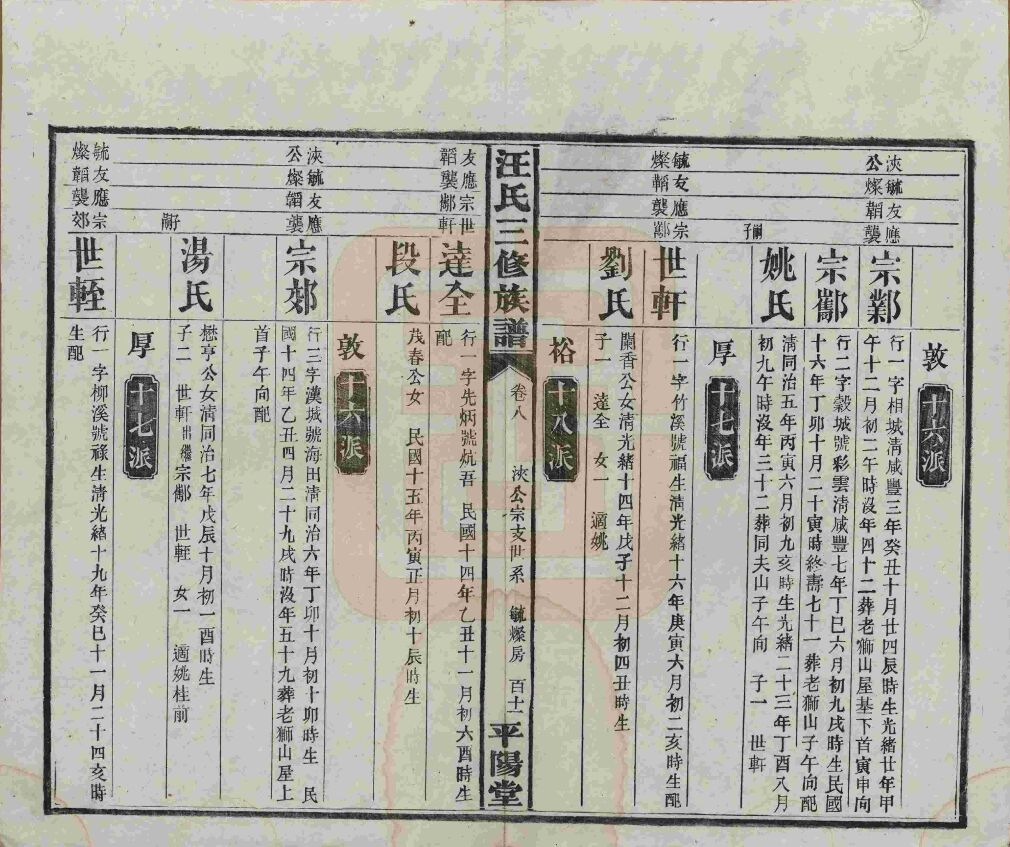 敦
十六派
浹毓友應
公燦韜襲
宗鄴
行一字相城清咸豐三年癸丑十月廿四辰時生光緒廿年甲
午十二月初二午時沒年四十二葬老獅山屋基下首寅申向
宗酈
行二字穀城號彩雲清咸豐七年丁巳六月初九戌時生民國
十六年丁卯十月二十寅時終壽七十一葬老獅山子午向配
嗣子
姚氏
清同治五年丙寅六月初九亥時生光緒二十三年丁酉八月
初九午時沒年三十二葬同夫山子午向 子一 世軒
厚
十七派
毓友應宗
燦韜襲酈
世軒
行一字竹溪號福生清光緒十六年庚寅六月初二亥時生配
劉氏
蘭香公女清光緒十四年戊子十二月初四丑時生
子一 達全 女一 適姚
裕
十八派
汪氏三修族譜
卷八
浹公宗支世系 毓燦房 百十一
平陽堂
友應宗世
韜襲酈軒
達全
行一字先炳號炕吾 民國十四年乙丑十一月初六酉時生
配
段氏
茂春公女 民國十五年丙寅正月初十辰時生
敦
十六派
浹毓友應
公燦韜襲
宗郊
行三字漢城號海田清同治六年丁卯十月初十卯時生 民
國十四年乙丑四月二十九戌時沒年五十九葬老獅山屋上
首子午向配
湯氏
懋亨公女清同治七年戊辰十月初一酉時生
子二 世軒出繼宗酈 世輊 女一 適姚桂前
厚
十七派
毓友應宗
燦韜襲郊
世輊
行一字柳溪號祿生清光緒十九年癸巳十一月二十四亥時
生配